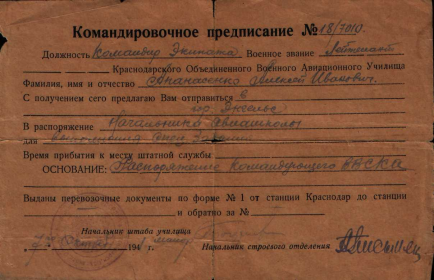 Командировочное предписание № 18/7010
Должность Командир Экипажа Военное звание Лейтенант
Краснодарского Объединенного Военного Авиационного Училища
Фамилия, имя и отчество Алексей Иванович.
С получением сего предлагаю Вам отправиться в
гор.
В распоряжение Начальника Авиашколы
для выполнения Спец. Задания
Время прибытия к месту штатной службы
ОСНОВАНИЕ: Распоряжение Командующего
Выданы перевозочные документы по форме № 1 от станции Краснодар до станции
и обратно за №
Начальник штаба училища
194 г.
Начальник строевого отделения